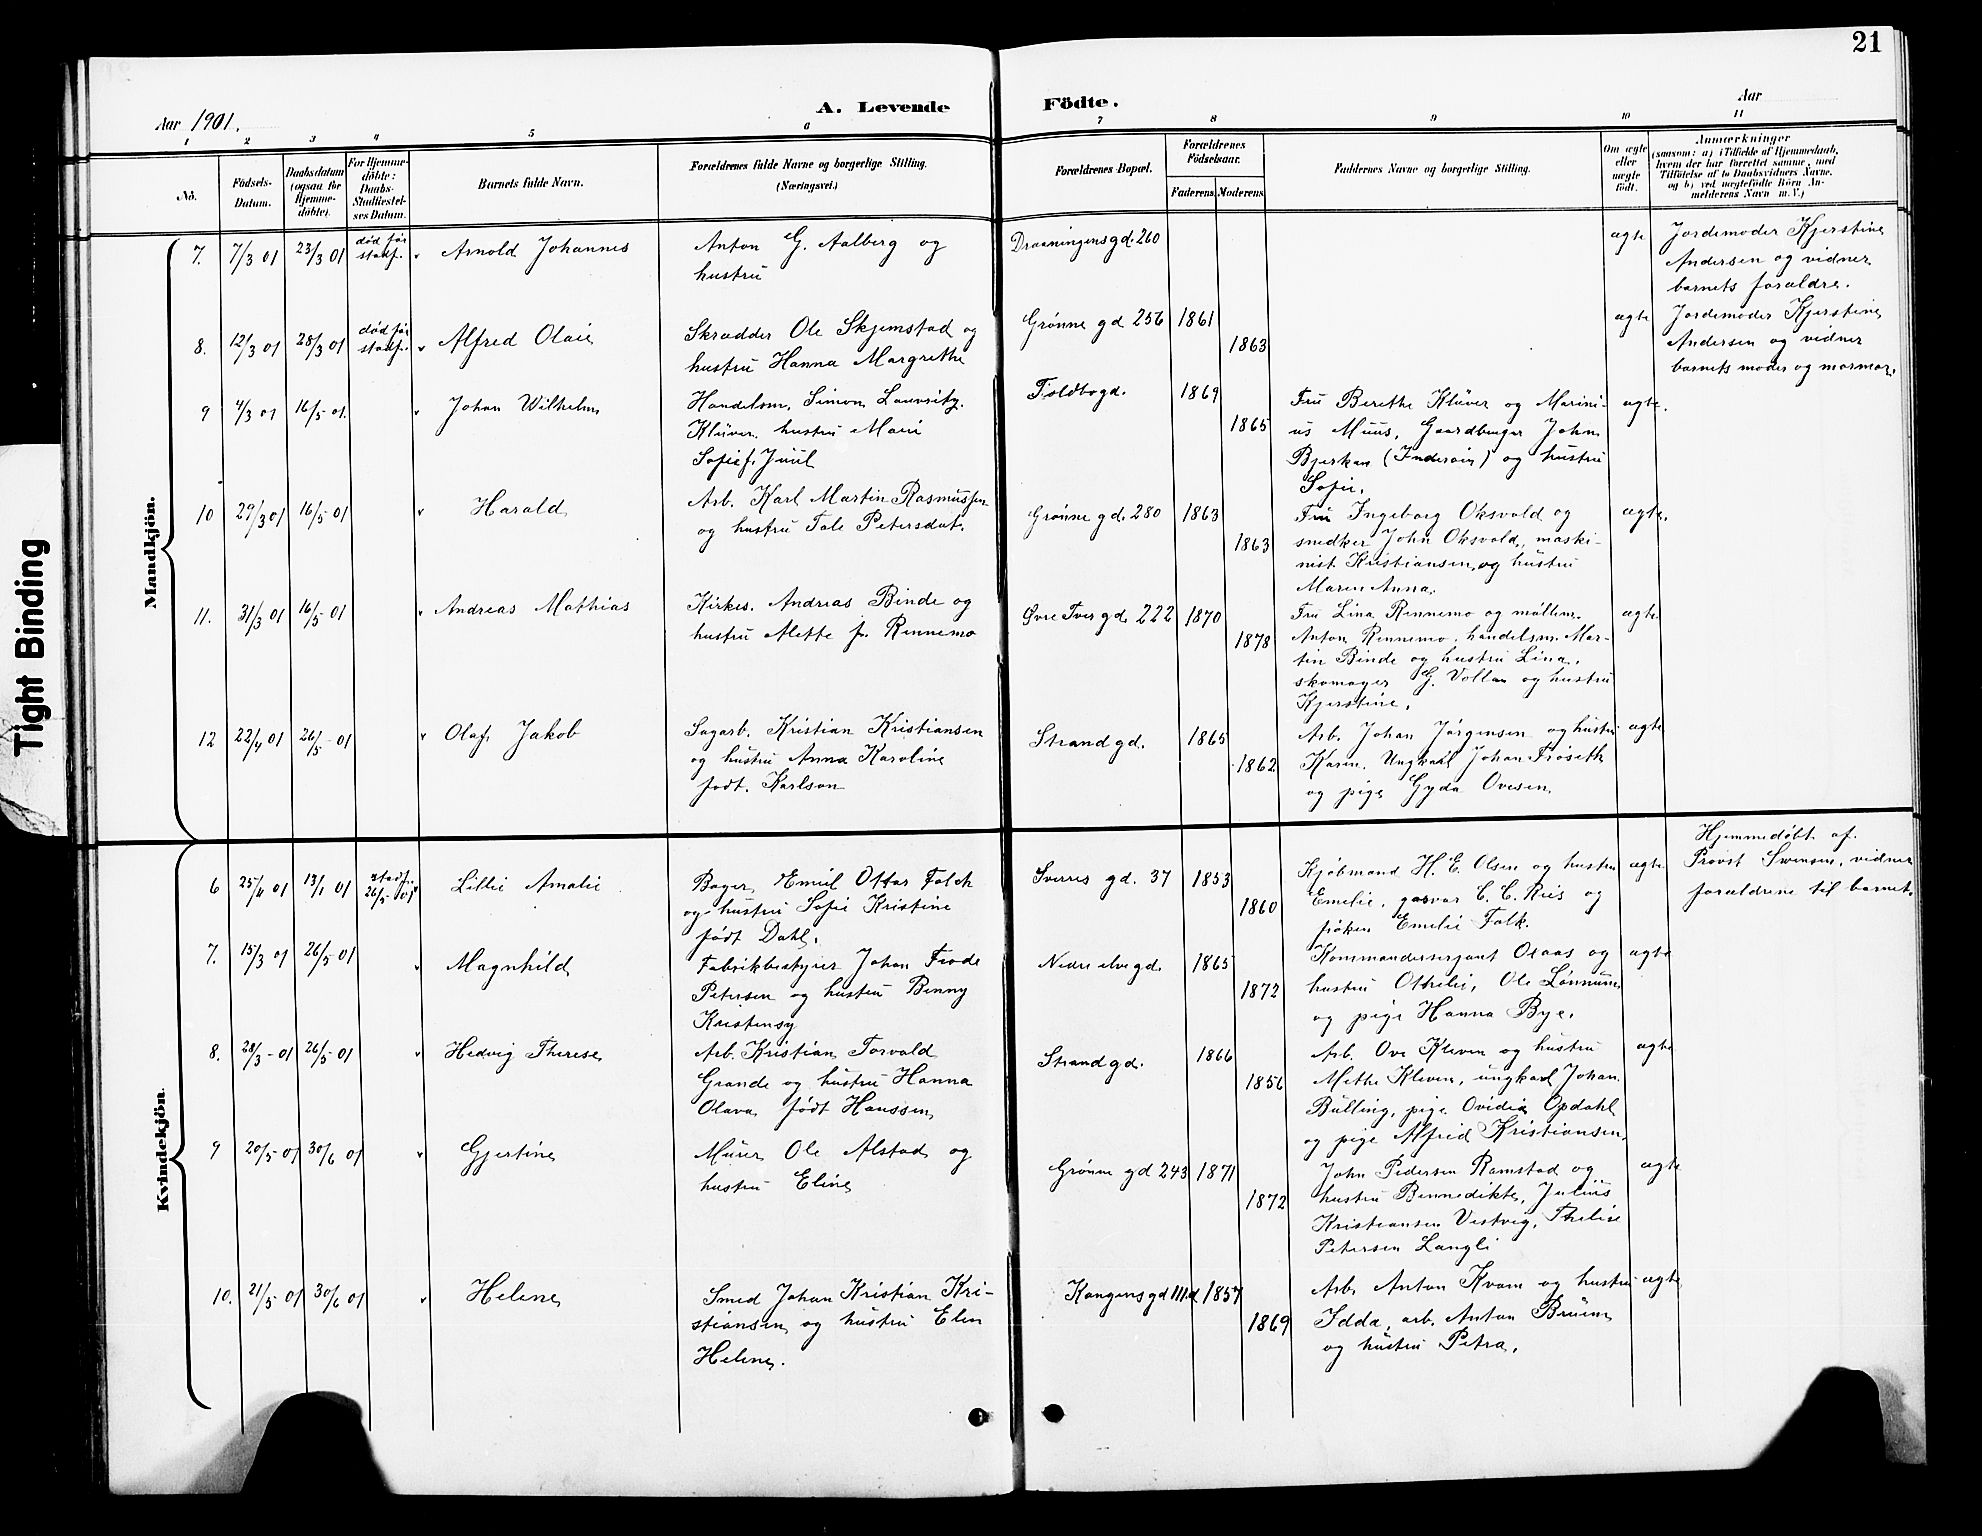 21
A. Levende Födte.
Aar 1901.
Aar
1 2 3 4 5 6 7 8 9 10 11
No.
Födsels-Datum.
Daabsdatum (ogsaa for Hjemme-döbte).
For Hjemme-döbte: Daabs-Stadfæstel-ses Datum.
Barnets fulde Navn.
Forældrenes fulde Navne og borgerlige Stilling.
(Næringsvei.)
Forældrenes Bopæl.
Forældrenes Födselsaar.
Faderens. Moderens.
Faddernes Navne og borgerlige Stilling.
Om ægte eller uægte födt.
Anmærkninger
(saasom: a) i Tilfælde af Hjemmedaab, hvem der har forrettet samme, med Tilföielse af to Daabsvidners Navne, og b) ved uægtefödte Börn An-melderens Navn m. V.)
Tight Binding
Mandkjön.
7. 7/3 01 23/3 01 død før stadf. Arnold Johannes
Anton G. Aalberg og
hustru
Dronningensgd. 260
ægte
Jordemoder Kjerstine
Andersen og vidner
barnets forældre.
8. 12/3 01 28/3 01 død før stadf. Alfred Olaie
Skrædder Ole Skjemstad og
hustru Hanna Margrethe
Grønne gd 256 1861 1863
ægte
Jordemoder Kjerstine
Andersen og vidner
barnets moder og mormor.
9 4/3 01 16/5-01. Johan Wilhelm
Handelsm. Simon Lauritz
Klüver hustru Marie
Sofie f. Juul
Toldbogd. 1869 1865
Fru Berethe Klüver og Marini-
us Muus, Gaardbruger John
Bjerkan (Inderøin) og hustru
Sofie.
ægte.
10 29/3 01 16/5-01 Harald
Arb. Karl Martin Rasmussen
og hustru Tale Petersdat.
Grønne gd. 280 1863 1863
Fru Ingeborg Oksvold og
snedker John Oksvold, maski-
nist Kristiansen og hustru
Maren Anna.
ægte.
11. 31/3 01 16/5-01 Andreas Mathias
Kirkes. Andreas Binde og
hustru Alette f. Rennemo
Øvre Tver gd. 222 1870 1878
Fru Lina Rennemo og møllem.
Anton Rennemo, handelsm. Mar-
tin Binde og hustru Lina,
skomager G. Vollan og hustru
Kjerstine.
ægte.
12 22/4 01 26/5-01 Olaf Jakob
Sagarb. Kristian Kristiansen
og hustru Anna Karoline
født Karlson
Strandgd. 1865 1862
Arb. Johan Jørgensen og hustru
Karen. Ungkarl Johan Frøseth
og pige Gyda Ovesen.
ægte
Kvindekjön.
6 25/4 01 13/1 01 stadf. 26/5-01 Lillie Amalie
Bager Emiel Ottar Falck
og hustru Sofie Kristine
født Dahl.
Sverres gd. 37 1853 1860
Kjøbmand H. E. Olsen og hustru
Emelie, C. C. Ries og
frøken Emelie Falk.
ægte
Hjemmedøbt af
Provst Swensen, vidner
forældrene til barnet.
7. 15/3 01 26/5-01 Magnhild
Fabrikbestyrer Johan Frode
Petersen og hustru Benny
Kristensy
Nedre elvegd. 1865 1872
Kommandersersjant Olaas og
hustru Othelie, Ole Lønnum
og pige Hanna Bye.
ægte
8. 28/3-01 26/5-01 Hedvig Therese
Arb. Kristian Torvald
Grande og hustru Hanna
Olava født Hanssen
Strandgd. 1866 1856
Arb. Ove Kleven og hustru
Methe Kleven, ungkarl Johan
Bulling, pige Ovidia Opdahl
og pige Alfrid Kristiansen.
ægte
9 20/5-01 30/6 01 Gjertine
Murer Ole Alstad og
hustru Eline
Grønne gd 243 1871 1872
John Pedersen Ramstad og
hustru Bennedikte, Julius
Kristiansen Vestvig, Theline
Petersen Langli
ægte
10. 21/5-01 30/6 01 Helene
Smed Johan Kristian Kri-
stiansen og hustru Elen
Helene.
Kongensgd 111d 1857 1869
Arb. Anton Kvam og hustru
Idda, arb. Anton Bruem
og hustru Petra.
ægte